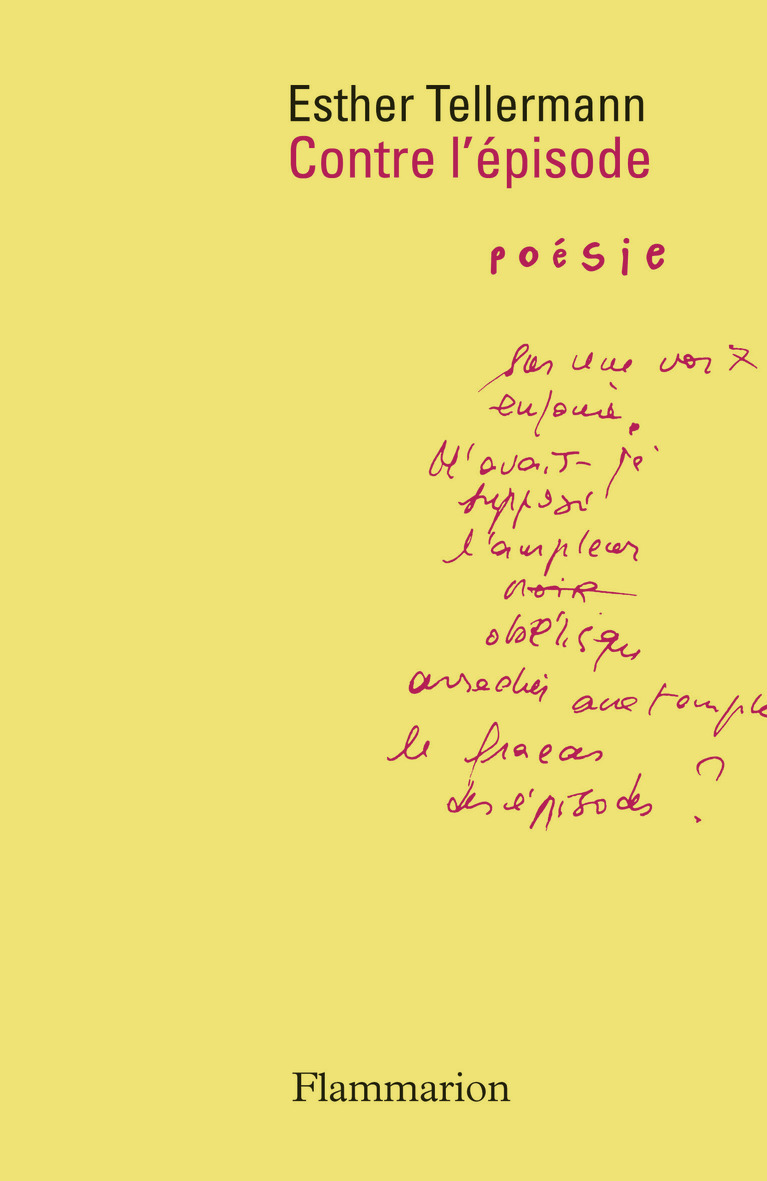 Esther Tellermann
Contre l'épisode
poésie
sur une voix
enfouie.
N'avait-je
supposé
l'ampleur
noir
oblique
arrachés aux temples
le fracas
des épisodes ?
Flammarion